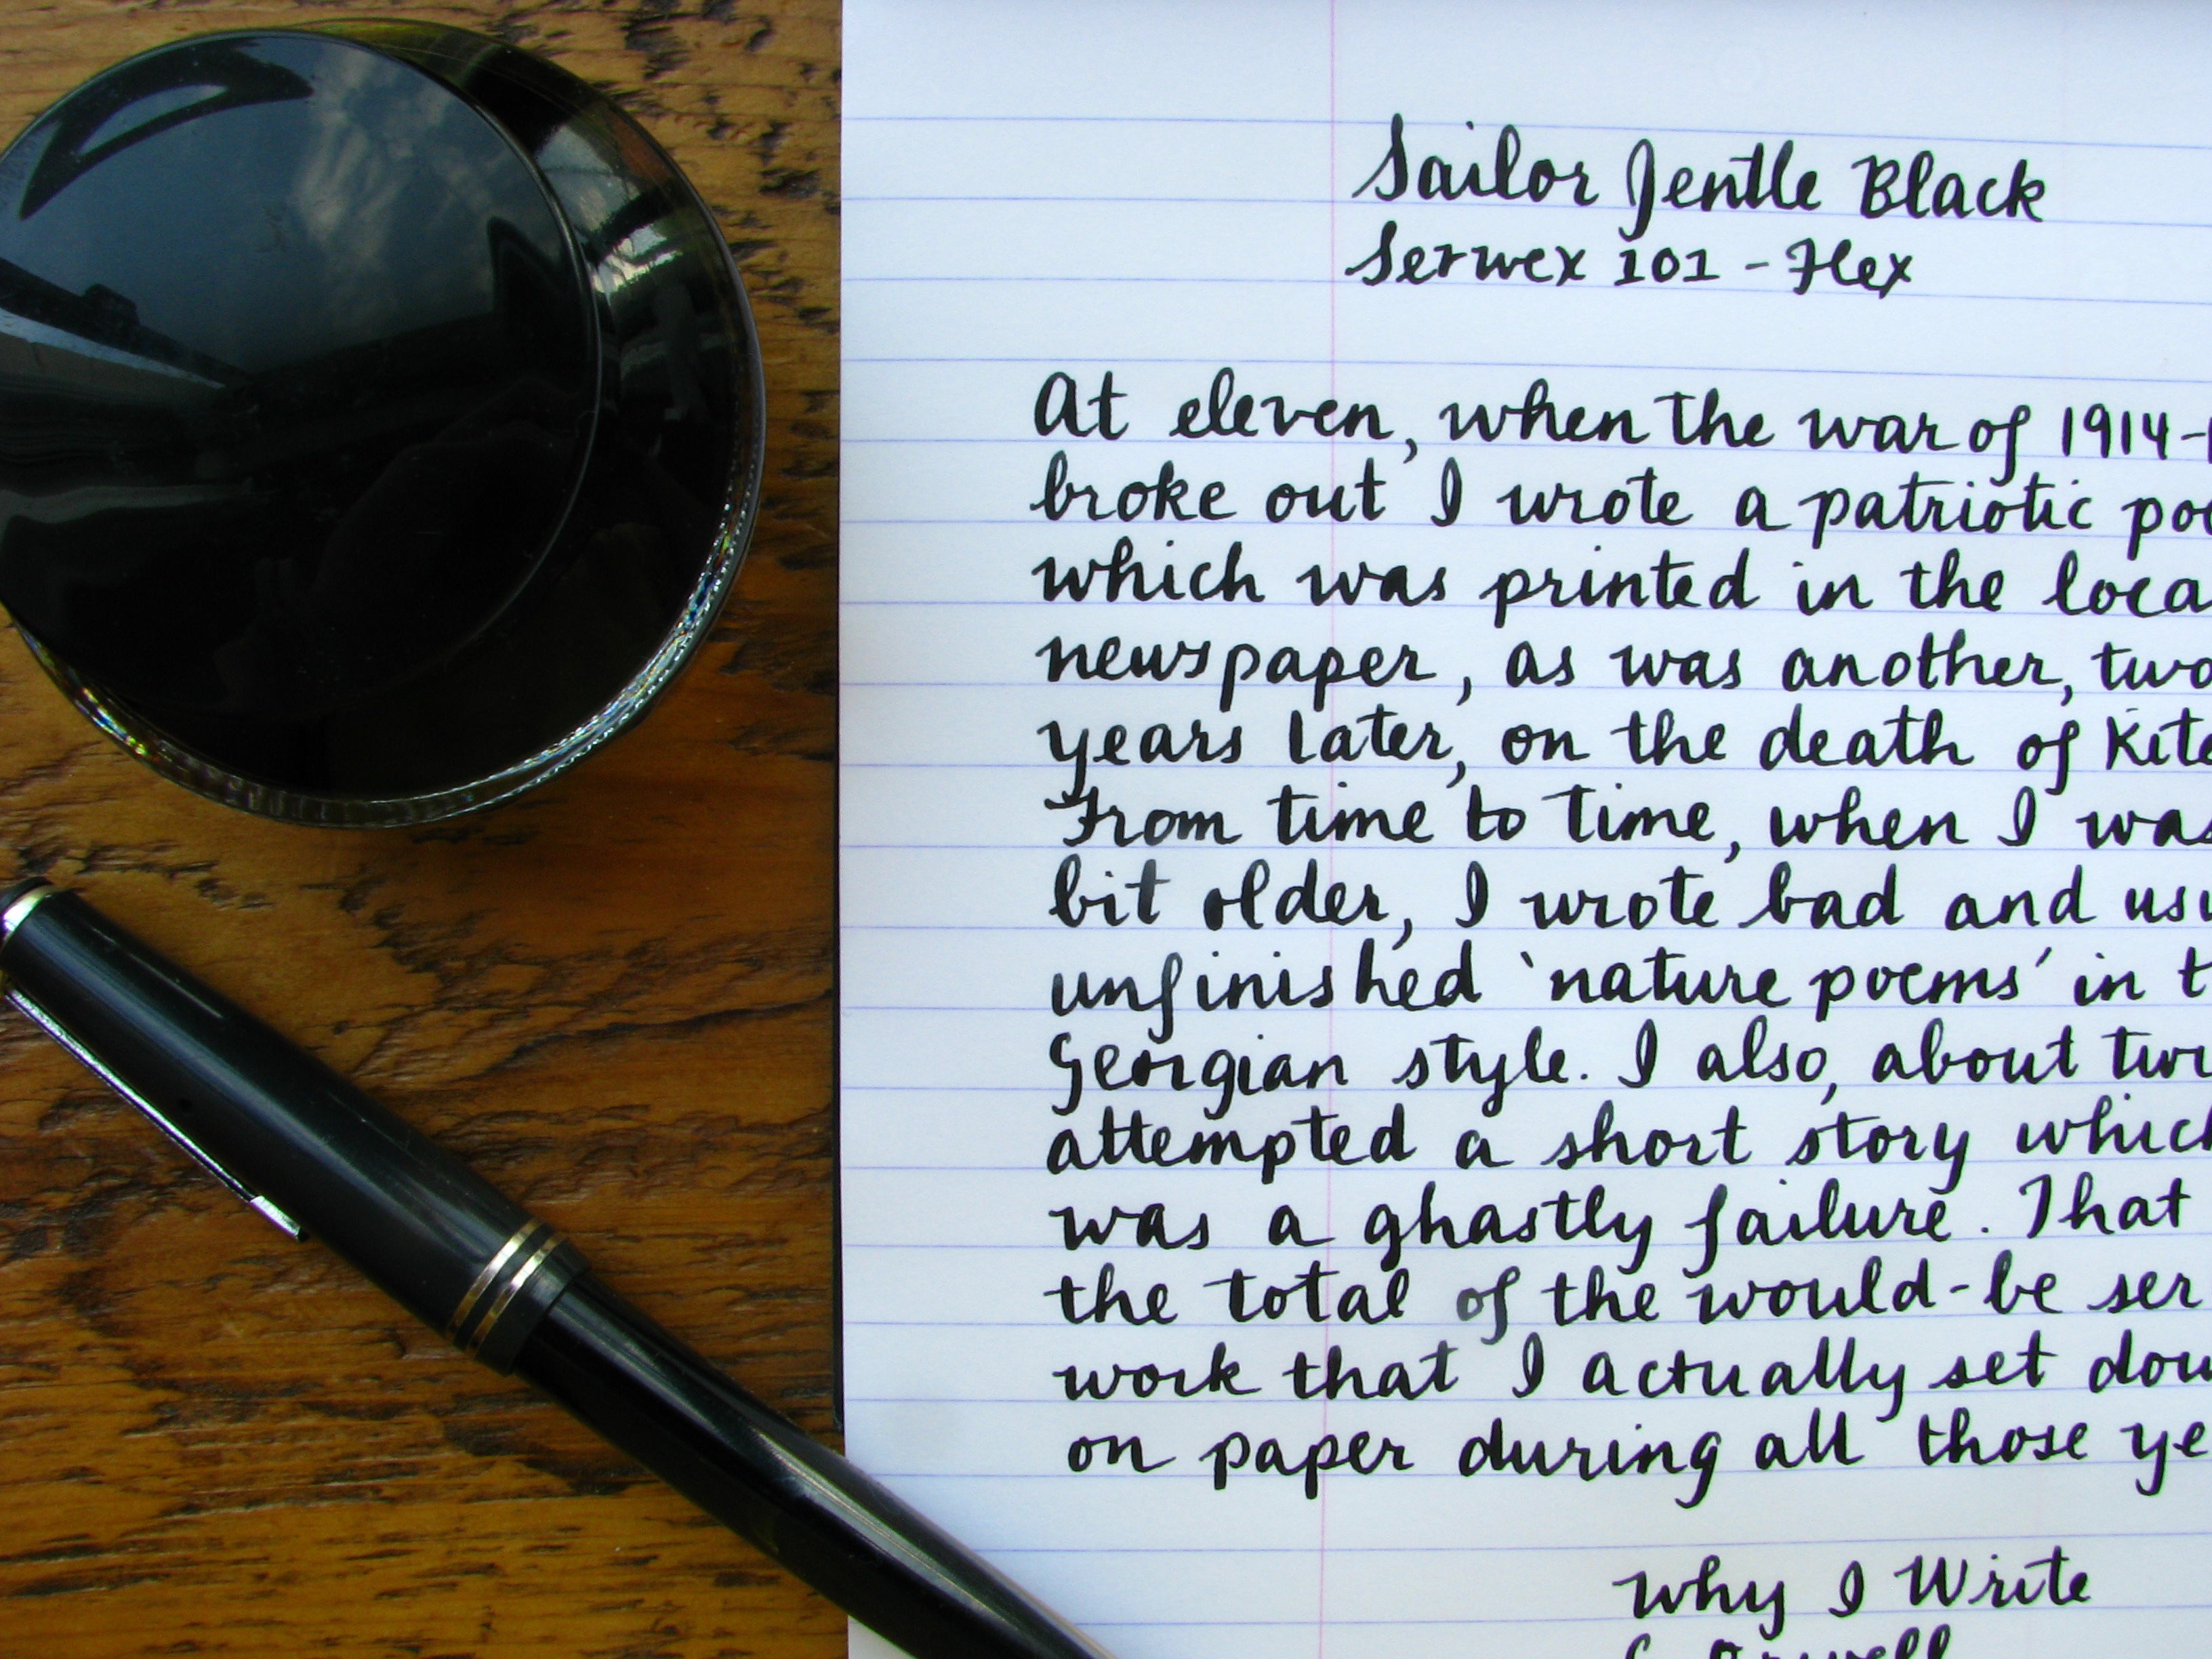 Sailor Jentle Black
Serwex 101 - Flex
At eleven, when the war of 1914-
broke out I wrote a patriotic
which was printed in the
newspaper, as was another, two
years later, on the death of
From time to time, when I was
bit older, I wrote bad and
unfinished 'nature poems' in
Georgian style. I also, about
attempted a short story which
was a ghastly failure. That
the total of the would-be
work that I actually set
on paper during all those
Why I Write
Orwell